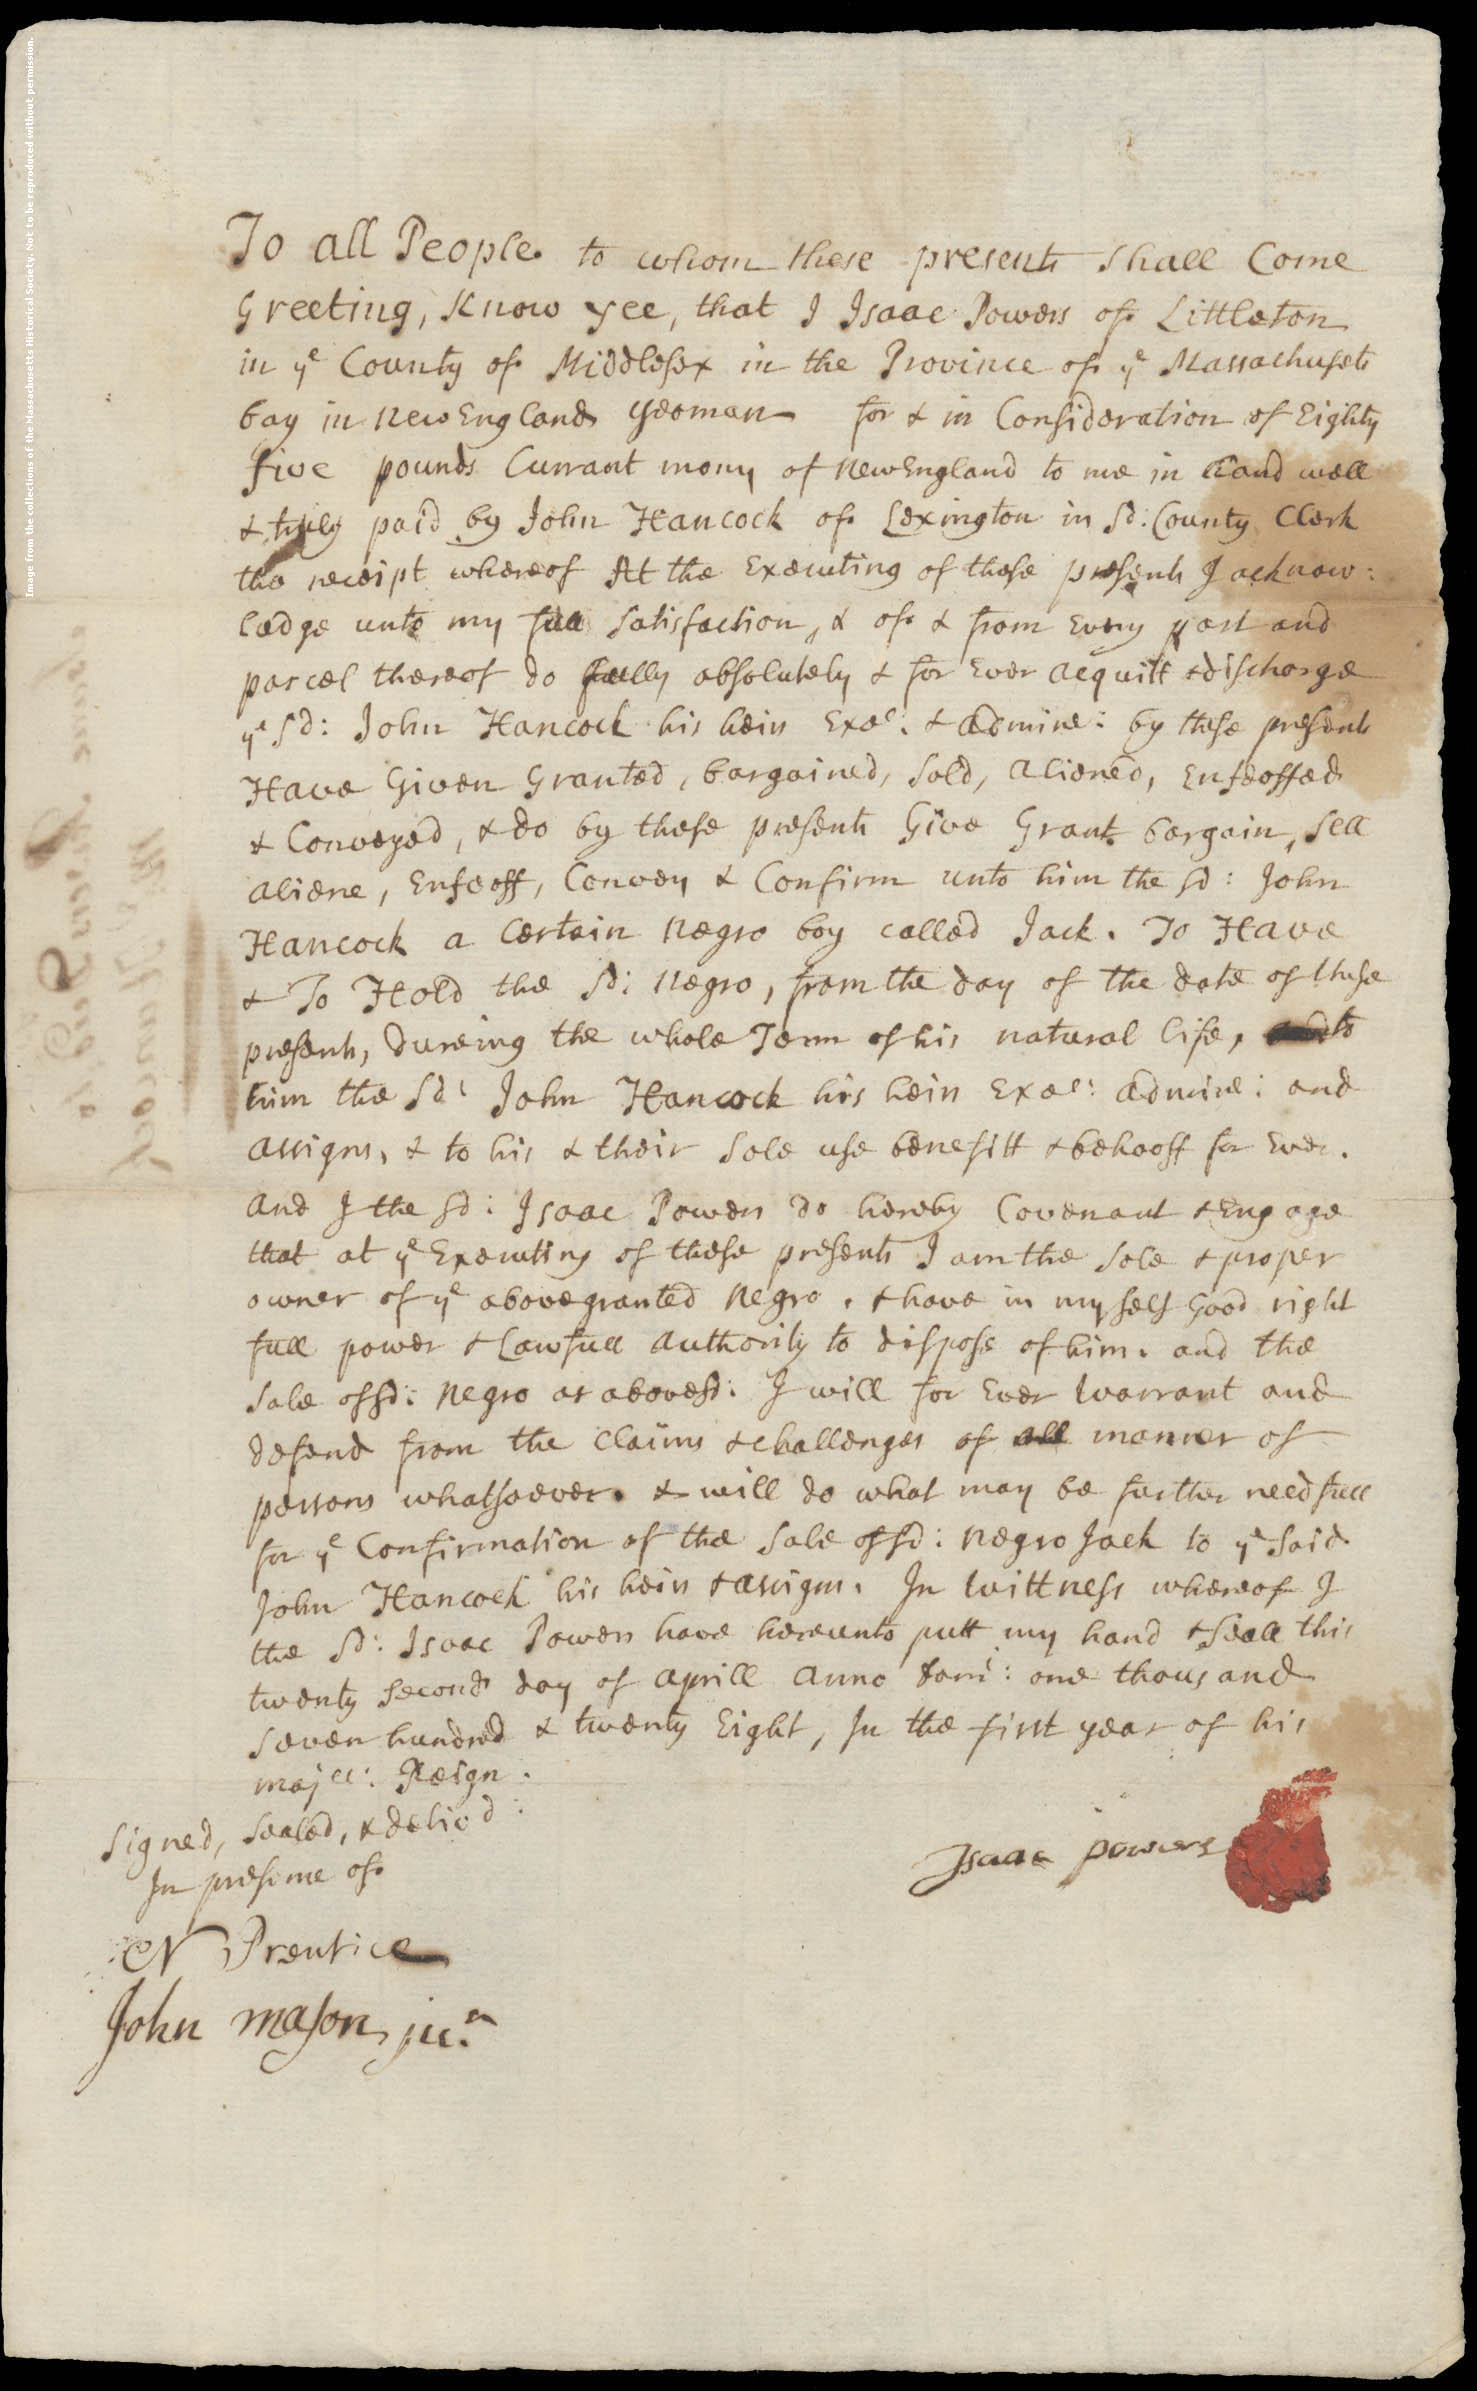 Image from the collections of the Massachusetts Historical Society. Not to be reproduced without permission.
To all People to whom these presents shall Come
Greeting, Know yee, that I Isaac Powers of Littleton
in yᵉ County of Middlesex in the Province of yᵉ Massachusets
bay in New England yeoman for & in Consideration of Eighty
five pounds Currant mony of New England to me in hand well
& truly paid by John Hancock of Lexington in sd: County Clerk
the receipt whereof At the Executing of these presents I acknow:
ledge unto my full satisfaction, & of & from Every part and
parcel thereof do fully absolutely & for Ever acquitt & discharge
yᵉ sd: John Hancock his heirs Exec: & admine: by these presents
Have Given Granted, bargained, sold, aliened, Enfeoffed
& Conveyed, & do by these presents Give Grant bargain, sell
aliene, Enfeoff, Convey & Confirm unto him the sd: John
Hancock a certain Negro boy called Jack. To Have
& To Hold the sd: Negro, from the day of the date of these
presents, dureing the whole Term of his natural life, to
him the sd: John Hancock his heirs Exec: admine: and
assigns, & to his & their sole use benefitt & behooff for Ever.
And I the sd: Isaac Powers do hereby Covenant & Engage
that at yᵉ Executing of these presents I am the sole & proper
owner of yᵉ above granted Negro, & have in my self Good right
full power & Lawfull authority to dispose of him. and the
sale of sd: Negro as abovesd: I will for Ever warrant and
defend from the Claims & challenges of all manner of
persons whatsoever. & will do what may be further needfull
for yᵉ Confirmation of the sale of sd: Negro Jack to yᵉ said
John Hancock his heirs & assigns. In Wittness whereof I
the sd: Isaac Powers have hereunto putt my hand & seall this
twenty second day of aprill anno domi: one thousand
seven hundred & twenty Eight, In the first year of his
majᵗⁱᵉ: Reign.
Signed, sealed, & delivd:
In presence of
N Prentice
John Mason, juʳ
Isaac powers